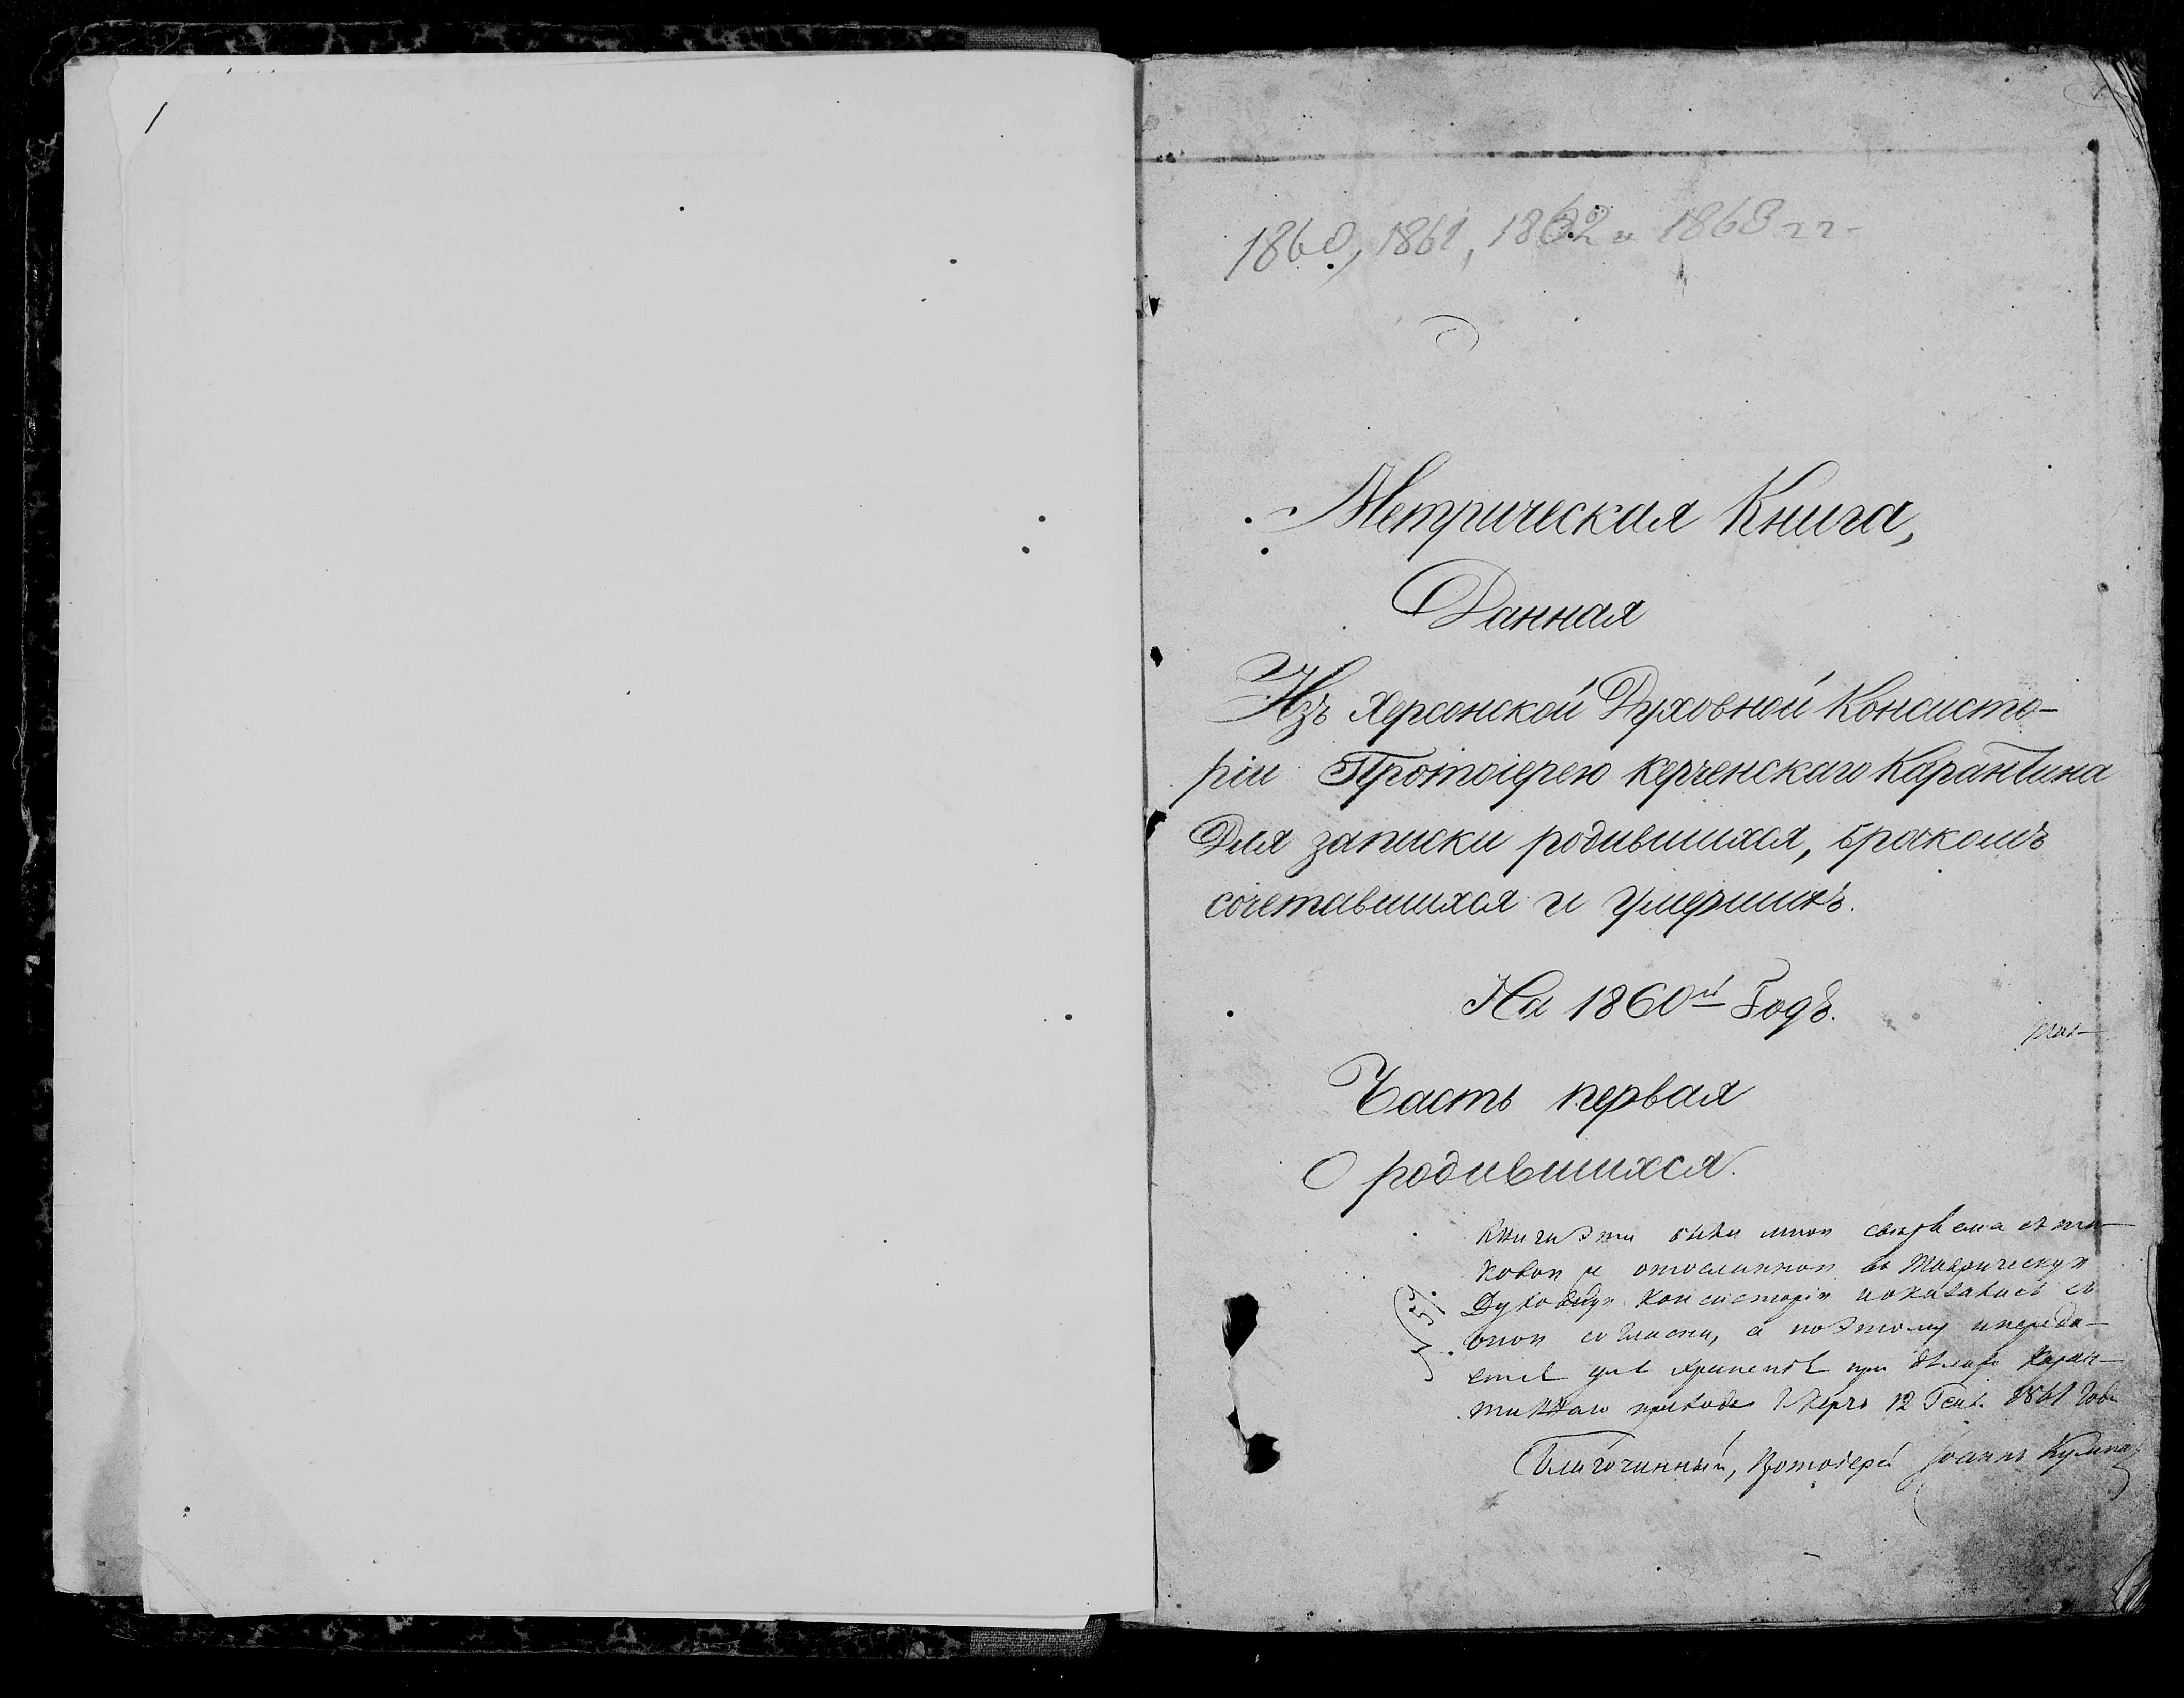 1860, 1861, 1862 и 1863 гг.
Метрическая Книга,
Данная
Изъ Херсонской Духовной Консисто-
ріи Протоіерею Керченскаго Карантина
Для записки родившихся, бракомъ
сочетавшихся и умершихъ.
На 1860й Годъ.
Часть первая
О родившихся.
Книги эти были мною свѣрены съ та-
ковою же отосланною въ Таврическую
Духовную Консисторію и оказались съ
оною согласны, а поэтому
для храненія при дѣлахъ Каран-
тиннаго прихода Керчь 12 1861 года
Благочинный, Протоіерей Іоаннъ